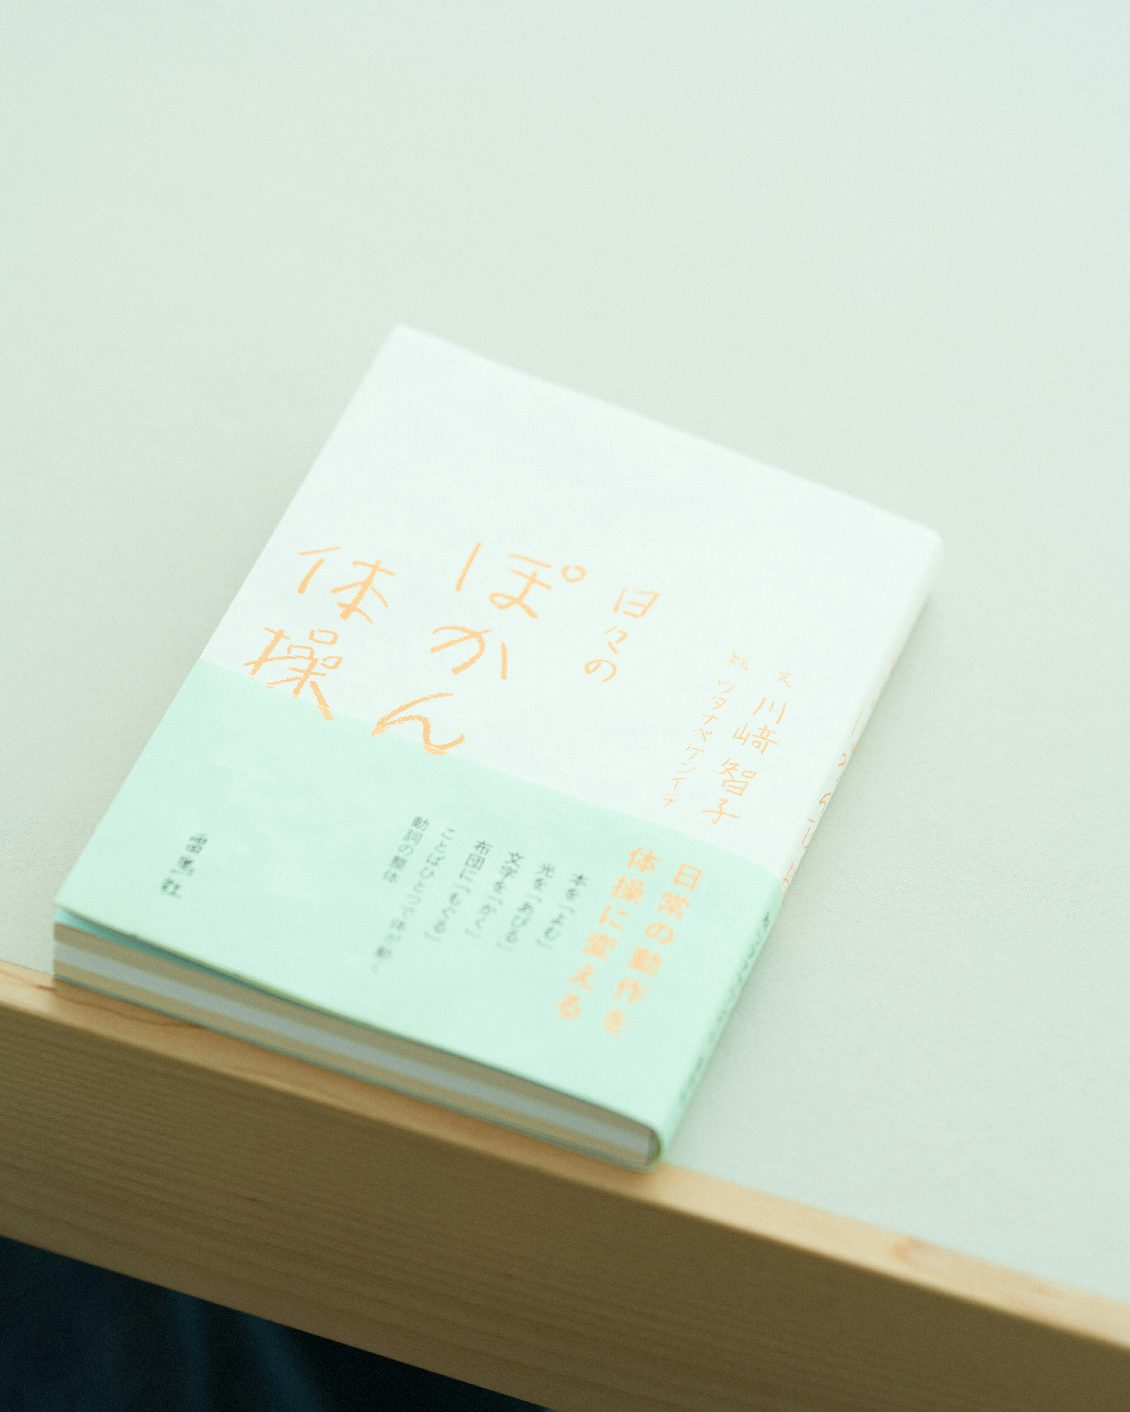 文 川﨑 智子
絵 ワタナベケンイチ
日々の
ぽかん
体操
日常の動作を
体操に変える
本を「よむ」
光を「あびる」
文字を「かく」
布団に「もぐる」
ことばひとつで体が動く
動詞の整体
雷鳥社